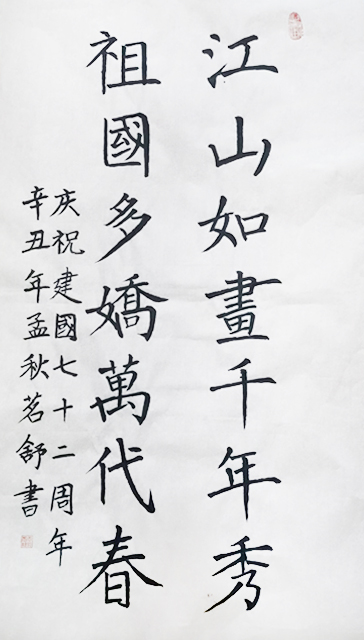 江山如畫千年秀
祖國多嬌萬代春
庆祝建國七十二周年
辛丑年孟秋茗舒書